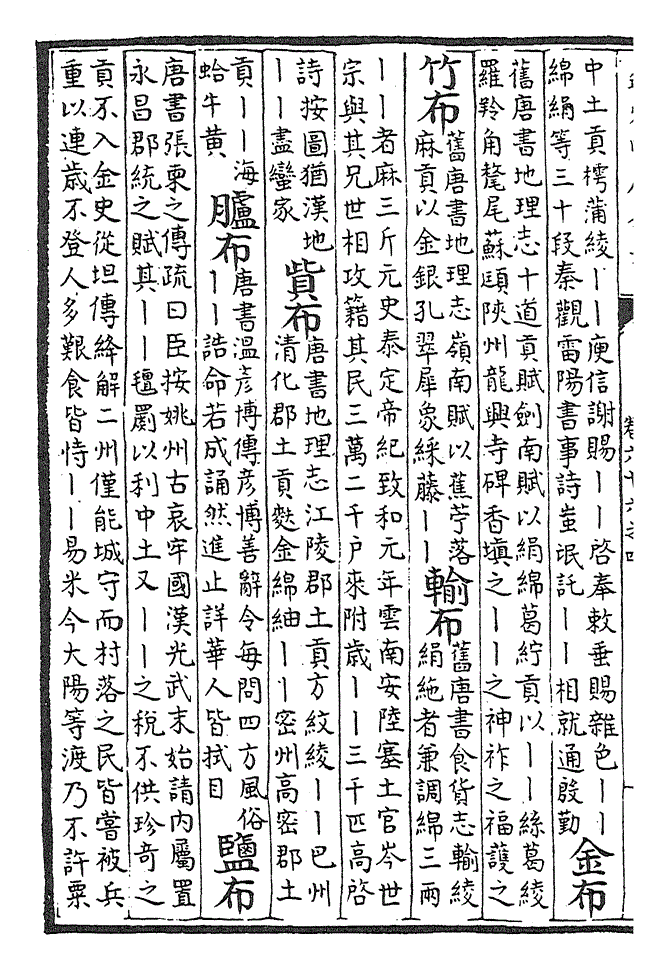 中土貢樗蒲綾丨丨庾信謝賜丨丨啓奉敕垂賜雜色丨丨
綿絹等三十段秦觀雷陽書事詩蚩氓託丨丨相就通殷勤
金布
舊唐書地理志十道貢賦劍南賦以絹綿葛紵貢以丨丨絲葛綾
羅羚角氂尾蘇頲陝州龍興寺碑香塡之丨丨之神祚之福護之
竹布
舊唐書地理志嶺南賦以蕉苧落
麻貢以金銀孔翠犀象綵藤丨丨
輸布
舊唐書食貨志輸綾
絹絁者兼調綿三兩
丨丨者麻三斤元史泰定帝紀致和元年雲南安陸塞土官岑世
宗與其兄世相攻籍其民三萬二千戶來附歲丨丨三千匹高啓
詩按圖猶漢地
丨丨盡蠻家
貲布
唐書地理志江陵郡土貢方紋綾丨丨巴州
清化郡土貢麩金綿紬丨丨密州高密郡土
貢丨丨海
蛤牛黃
臚布
唐書溫彥博傳彥博善辭令每問四方風俗
丨丨誥命若成誦然進止詳華人皆拭目
鹽布
唐書張柬之傳疏曰臣按姚州古哀牢國漢光武末始請內屬置
永昌郡統之賦其丨丨氊罽以利中土又丨丨之稅不供珍奇之
貢不入金史從坦傳絳解二州僅能城守而村落之民皆嘗被兵
重以連歲不登人多艱食皆恃丨丨易米今大陽等渡乃不許粟